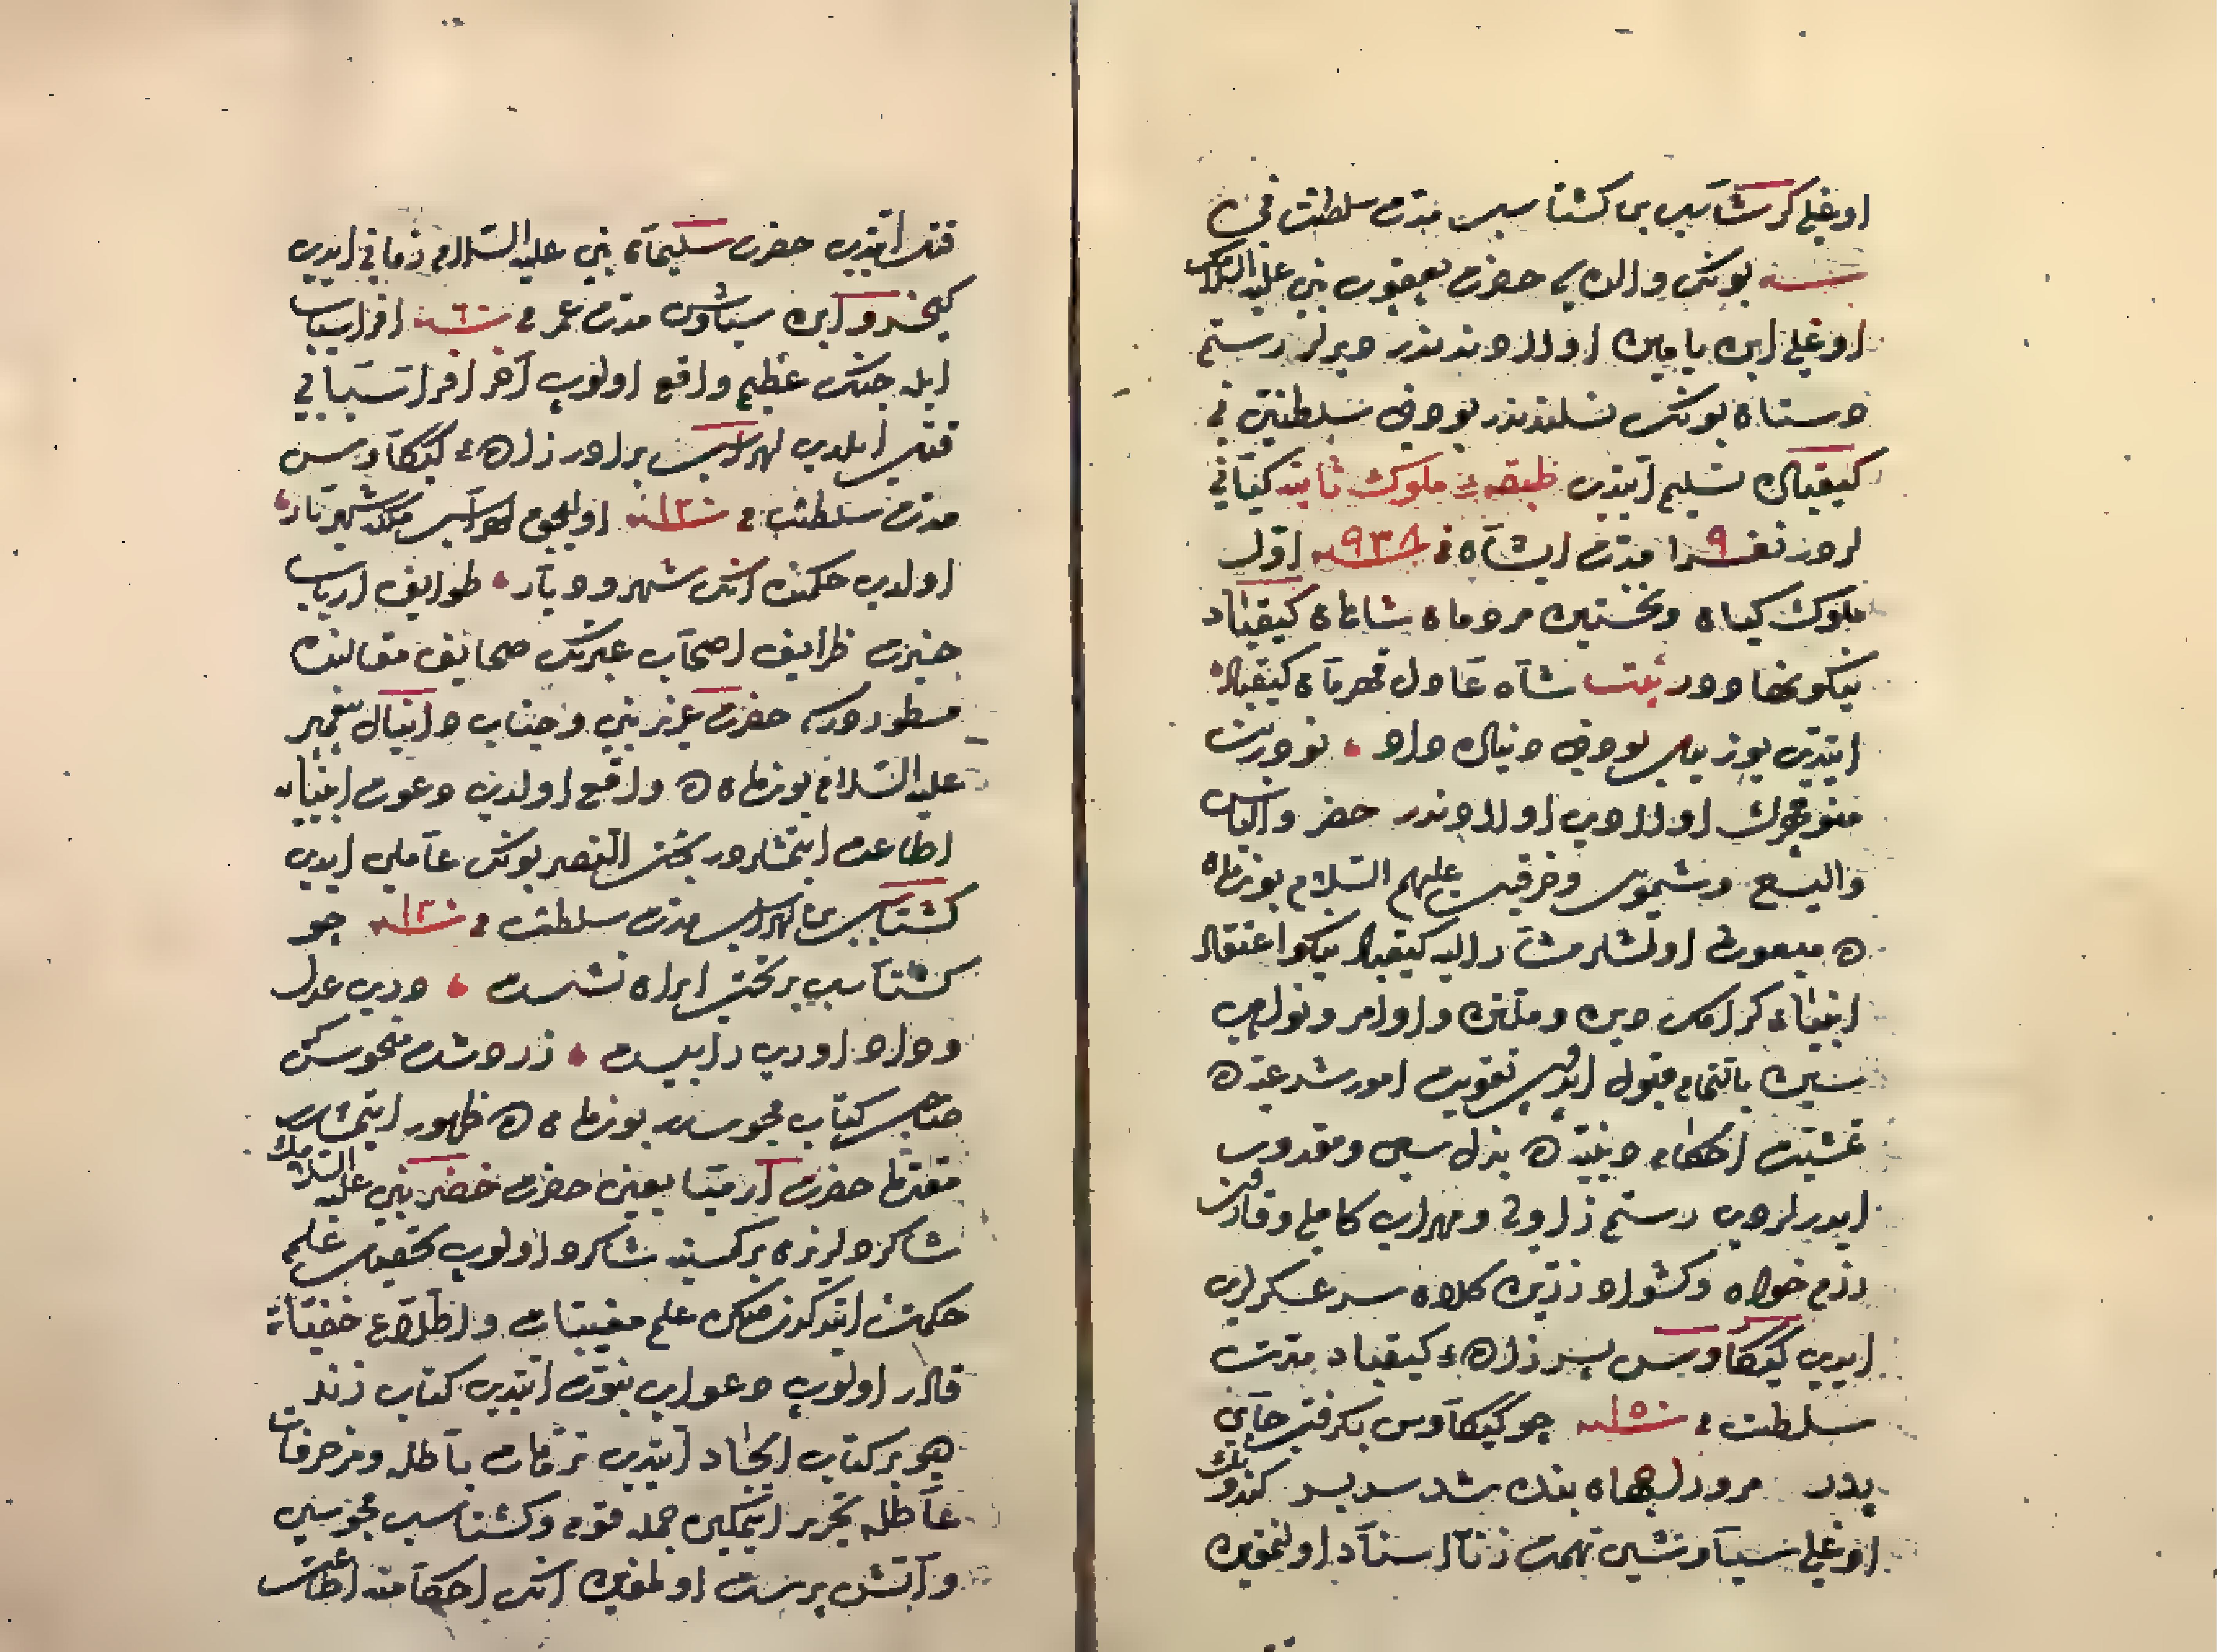 اوغلی کرشاسب بن کشتاسب مدت سلطنت فی
سنه بونک والده سی حضرت یعقوب نبی علیه السلامک
اوغلی ابن یامین اولادندندر دیرلر رستم
دستان بونک نسلندندر بو دخی سلطنتنی
کیقباده تسلیم ایتدی طبقهٔ ملوک ثانیه کیانی
لردر نفر ٩ مدت ایشان فی سنه ٩٣٨ اول
ملوک کیان و نخستین مردمان شاهان کیقباد
نیکونهاددر بیت شاه عادل قهرمان کیقباد
ایتدی یوز ییل بو دخی دنیاده داد نوذر بن
منوچهرک اولادی اولادندر خضر والیاس
والیسع وشمویل وحزقیل علیهم السلام بو زمان
ده مبعوث اولمشلر مشار الیه کیقباد نیکو اعتقاد
انبیاء کرامک دین وملتن واوامر ونواهی
سین بالتمام قبول ایدوب تقویت امور شرعیه ده
تمشیت احکام دینیه ده بذل سعی ومقدور
ایدرلردی رستم زاولی ومهراب کابلی وقارن
رزم خواه وکشواد زرین کلاه سرعسکرلری
ایدی کیکاوس پسر زادهٔ کیقباد مدت
سلطنت فی سنه ١٥٠ چو کیکاوس بکرفت جای
پدر مرورا جهان بنده شد سربسر کندونک
اوغلی سیاوشی تهمت زنا اسناد اولنمغین
قتل ایتدی حضرت سلیمان نبی علیه السلام زمانی ایدی
کیخسرو ابن سیاوش مدت عمر فی سنه ٦٠ افراسیاب
ایله جنک عظیم واقع اولوب آخر افراسیابی
قتل ایلدی لهراسب برادر زادهٔ کیکاوس
مدت سلطنت فی سنه ١٢٠ اولیجق لهراسب ملکه شهریار
اولدی حکمنده انک شهر و دیار طوایف ارباب
خبرت ظرایف اصحاب عبرتک صحایف مقالنده
مسطوردرکه حضرت عزیر نبی وجناب دانیال پیغمبر
علیه السلام بو زمانده واقع اولدی دعوت انبیایه
اطاعت ایتمشلردر بخت النصر بونک عاملی ایدی
کشتاسب بن لهراسب مدت سلطنت فی سنه ١٢٠ چو
کشتاسب بر تخت ایران نشست در عدل
وداد اودر رابیست زردشت منحوس کی
صاحب کتاب مجوسدر بو زمانده ظهور ایتمشدر
مقدما حضرت ارمیا یعنی حضرت خضر نبی علیه السلامک
شاکردلرندن بر کسنه شاکرد اولوب تحصیل علم
حکمت ایتدکدنصکره علم مغیبات واطلاع خفیاته
قادر اولوب دعوای نبوت ایتدی کتاب زند
هو بر کتاب ایجاد ایتدی ترهات باطله ومزخرفات
عاطله تحریر ایتمکین جمله قومی وکشتاسب مجوسی
وآتش پرست اولمغین انک احکامنه اطاعت